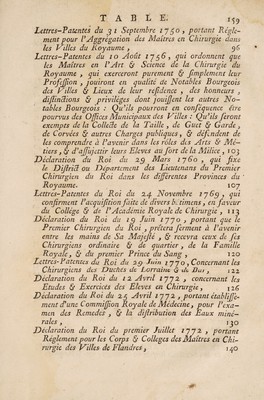 TABLE. 159
Lettres-Patentes du 31 Septembre 1750, portant Régle-
ment pour l'Aggrégation des Maîtres en Chirurgie dans
les Villes du Royaume, 96
Lettres-Patentes du 10 Août 1756, qui ordonnent que
les Maîtres en l'Art & Science de la Chirurgie du
Royaume, qui exerceront purement & simplement leur
Profession, jouiront en qualité de Notables Bourgeois
des Villes & Lieux de leur résidence, des honneurs,
distinctions & priviléges dont jouissent les autres No-
tables Bourgeois: Qu'ils pourront en conséquence être
pourvus des Offices Municipaux des Villes: Qu'ils seront
exempts de la Collecte de la Taille, de Guet & Garde,
de Corvées & autres Charges publiques, & défendent de
les comprendre à l'avenir dans les rôles des Arts & Mé-
tiers, & d'assujetir leurs Eleves au sort de la Milice, 103
Déclaration du Roi du 29 Mars 1760, qui fixe
le District ou Département des Lieutenans du Premier
Chirurgien du Roi dans les différentes Provinces du
Royaume. 107
Lettres-Patentes du Roi du 24 Novembre 1769, qui
confirment l'acquisition faite de divers bâtimens, en faveur
du Collège & de l'Académie Royale de Chirurgie, 113
Déclaration du Roi du 19 Juin 1770, portant que le
Premier Chirurgien du Roi, prêtera serment à l'avenir
entre les mains de Sa Majesté, & recevra ceux de ses
Chirurgiens ordinaire & de quartier, de la Famille
Royale, & du premier Prince du Sang, 120
Lettres-Patentes du Roi du 29 Juin 1770, Concernant les
Chirurgiens des Duchés de Lorraine & de Bar, 122
Déclaration du Roi du 12 Avril 1772, concernant les
Etudes & Exercices des Eleves en Chirurgie, 126
Déclaration du Roi du 25 Avril 1772, portant établisse-
ment d'une Commission Royale de Médecine, pour l'exa-
men des Remedes, & la distribution des Eaux miné-
rales, 130
Déclaration du Roi du premier Juillet 1772, portant
Réglement pour les Corps & Colleges des Maîtres en Chi-
rurgie des Villes de Flandres, 140